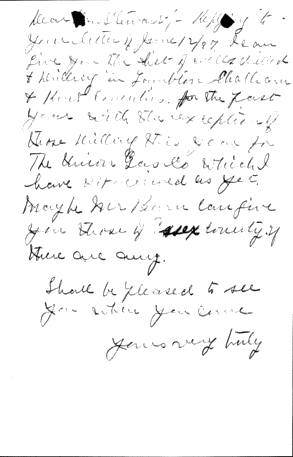 Dear Mr. Stewart:- Replying to
Your letter of June 12/97, I can
give you the list of wells drilled
& drilling in Lambton Chatham
& Kent Counties, for the past
year with the exception of
those drilling this year for
The Union Gas Co which I
have not received as yet.
Maybe Mr can give
you those of Essex County if
there are any.
Shall be pleased to see
you when you come
yours very truly